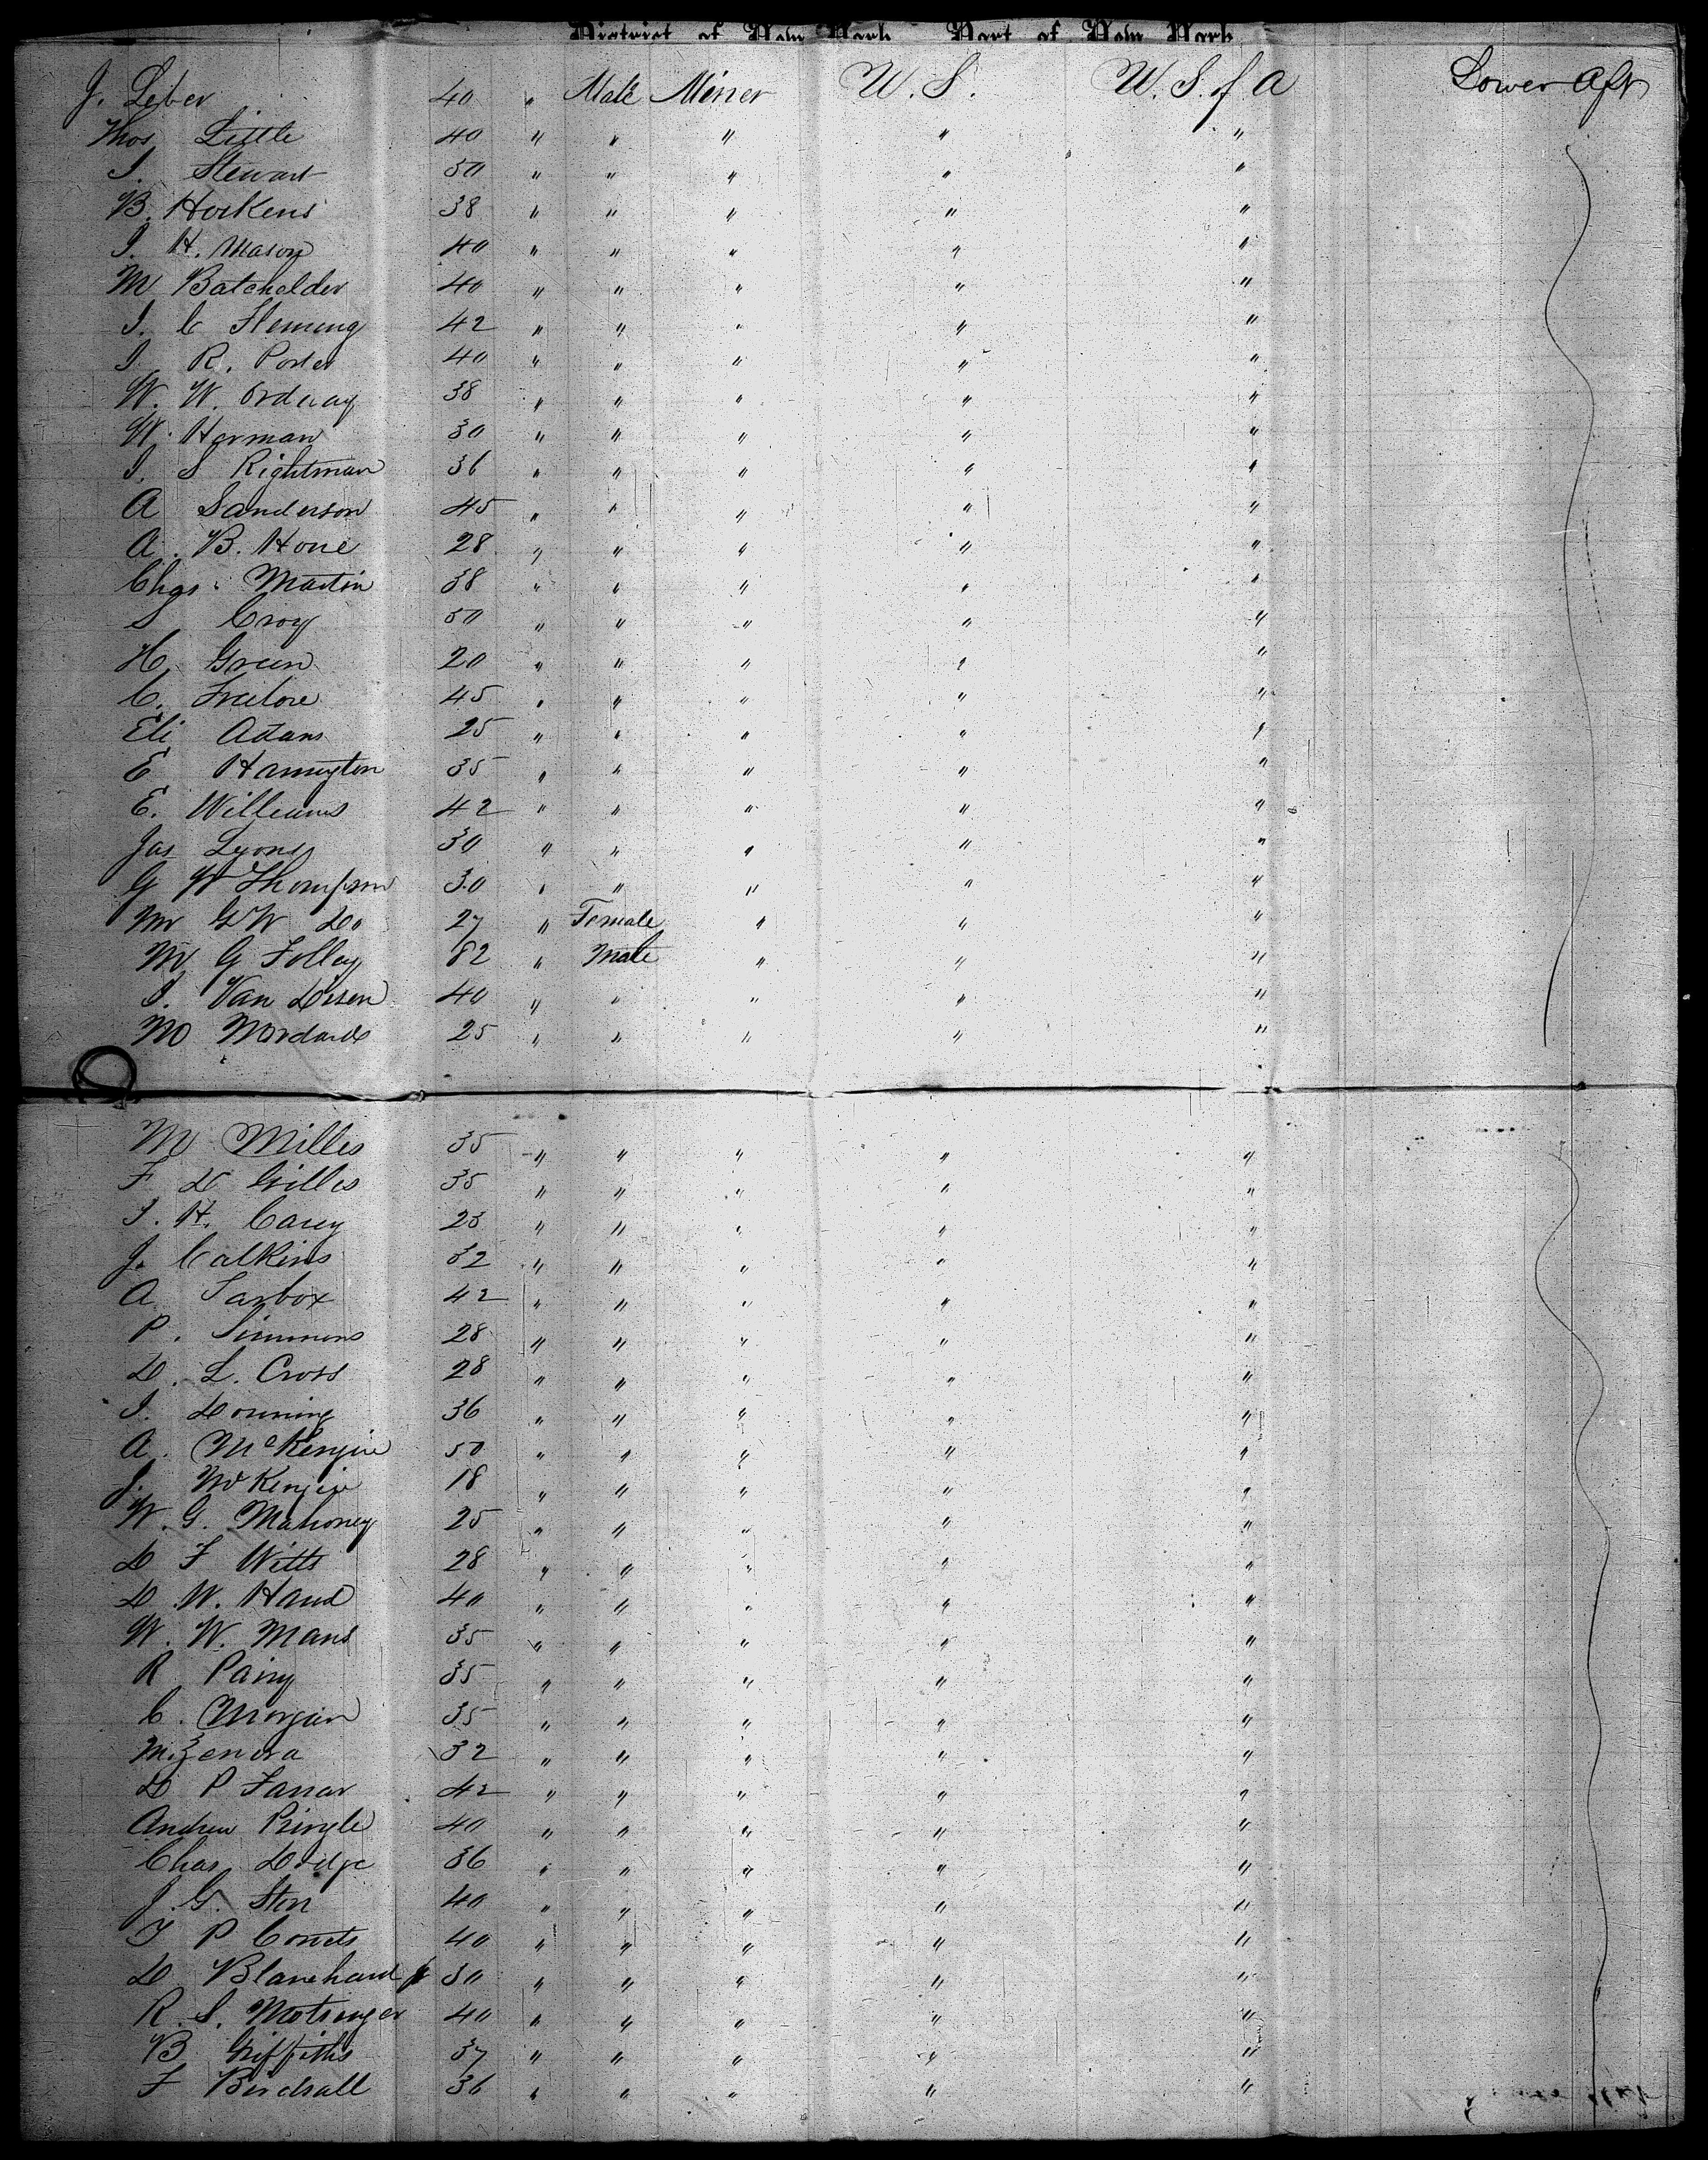 District of New York Port of New York
J. Leber 40 " Male Miner U.S. U.S. of A Lower Aft
Thos Little 40 " " " " "
J. Stewart 50 " " " " "
B. Hoskens 38 " " " " "
J. H. Mason 40 " " " " "
M Batchelder 40 " " " " "
J. C Fleming 42 " " " " "
J R. Porter 40 " " " " "
W. W. Ordway 38 " " " " "
W. Harman 30 " " " " "
J. S Rightman 36 " " " " "
A Sanderson 45 " " " " "
A. B. Hone 28 " " " " "
Chas. Martin 38 " " " " "
S Croy 50 " " " " "
H. Green 20 " " " " "
C. 45 " " " " "
Eli Adams 25 " " " " "
E Harrington 35 " " " " "
E. Williams 42 " " " " "
Jas Lyons 30 " " " " "
G W Thompson 30 " " " " "
Mr G W Do 27 " Female " " "
M G Folley 82 " Male " " "
J. Van 40 " " " " "
M 25 " " " " "
M Milles 35 " " " " "
F D Gilles 35 " " " " "
J. H. Carey 23 " " " " "
J. Calkins 32 " " " " "
A Tarbox 42 " " " " "
P. Simmons 28 " " " " "
D. L. Cross 28 " " " " "
J. Downing 36 " " " " "
A. McKenzie 50 " " " " "
J. McKenzie 18 " " " " "
W. G. Mahoney 25 " " " " "
D F Witts 28 " " " " "
D. W. Hand 40 " " " " "
W. W. Mans 35 " " " " "
R 35 " " " " "
C. Morgan 35 " " " " "
32 " " " " "
D P Farrar 42 " " " " "
Andrew Pringle 40 " " " " "
Chas Dodge 36 " " " " "
J. G. Sten 40 " " " " "
T P 40 " " " " "
D Blanchard Jr 30 " " " " "
R. S. Motsinger 40 " " " " "
B Griffiths 37 " " " " "
F Birdsall 36 " " " " "